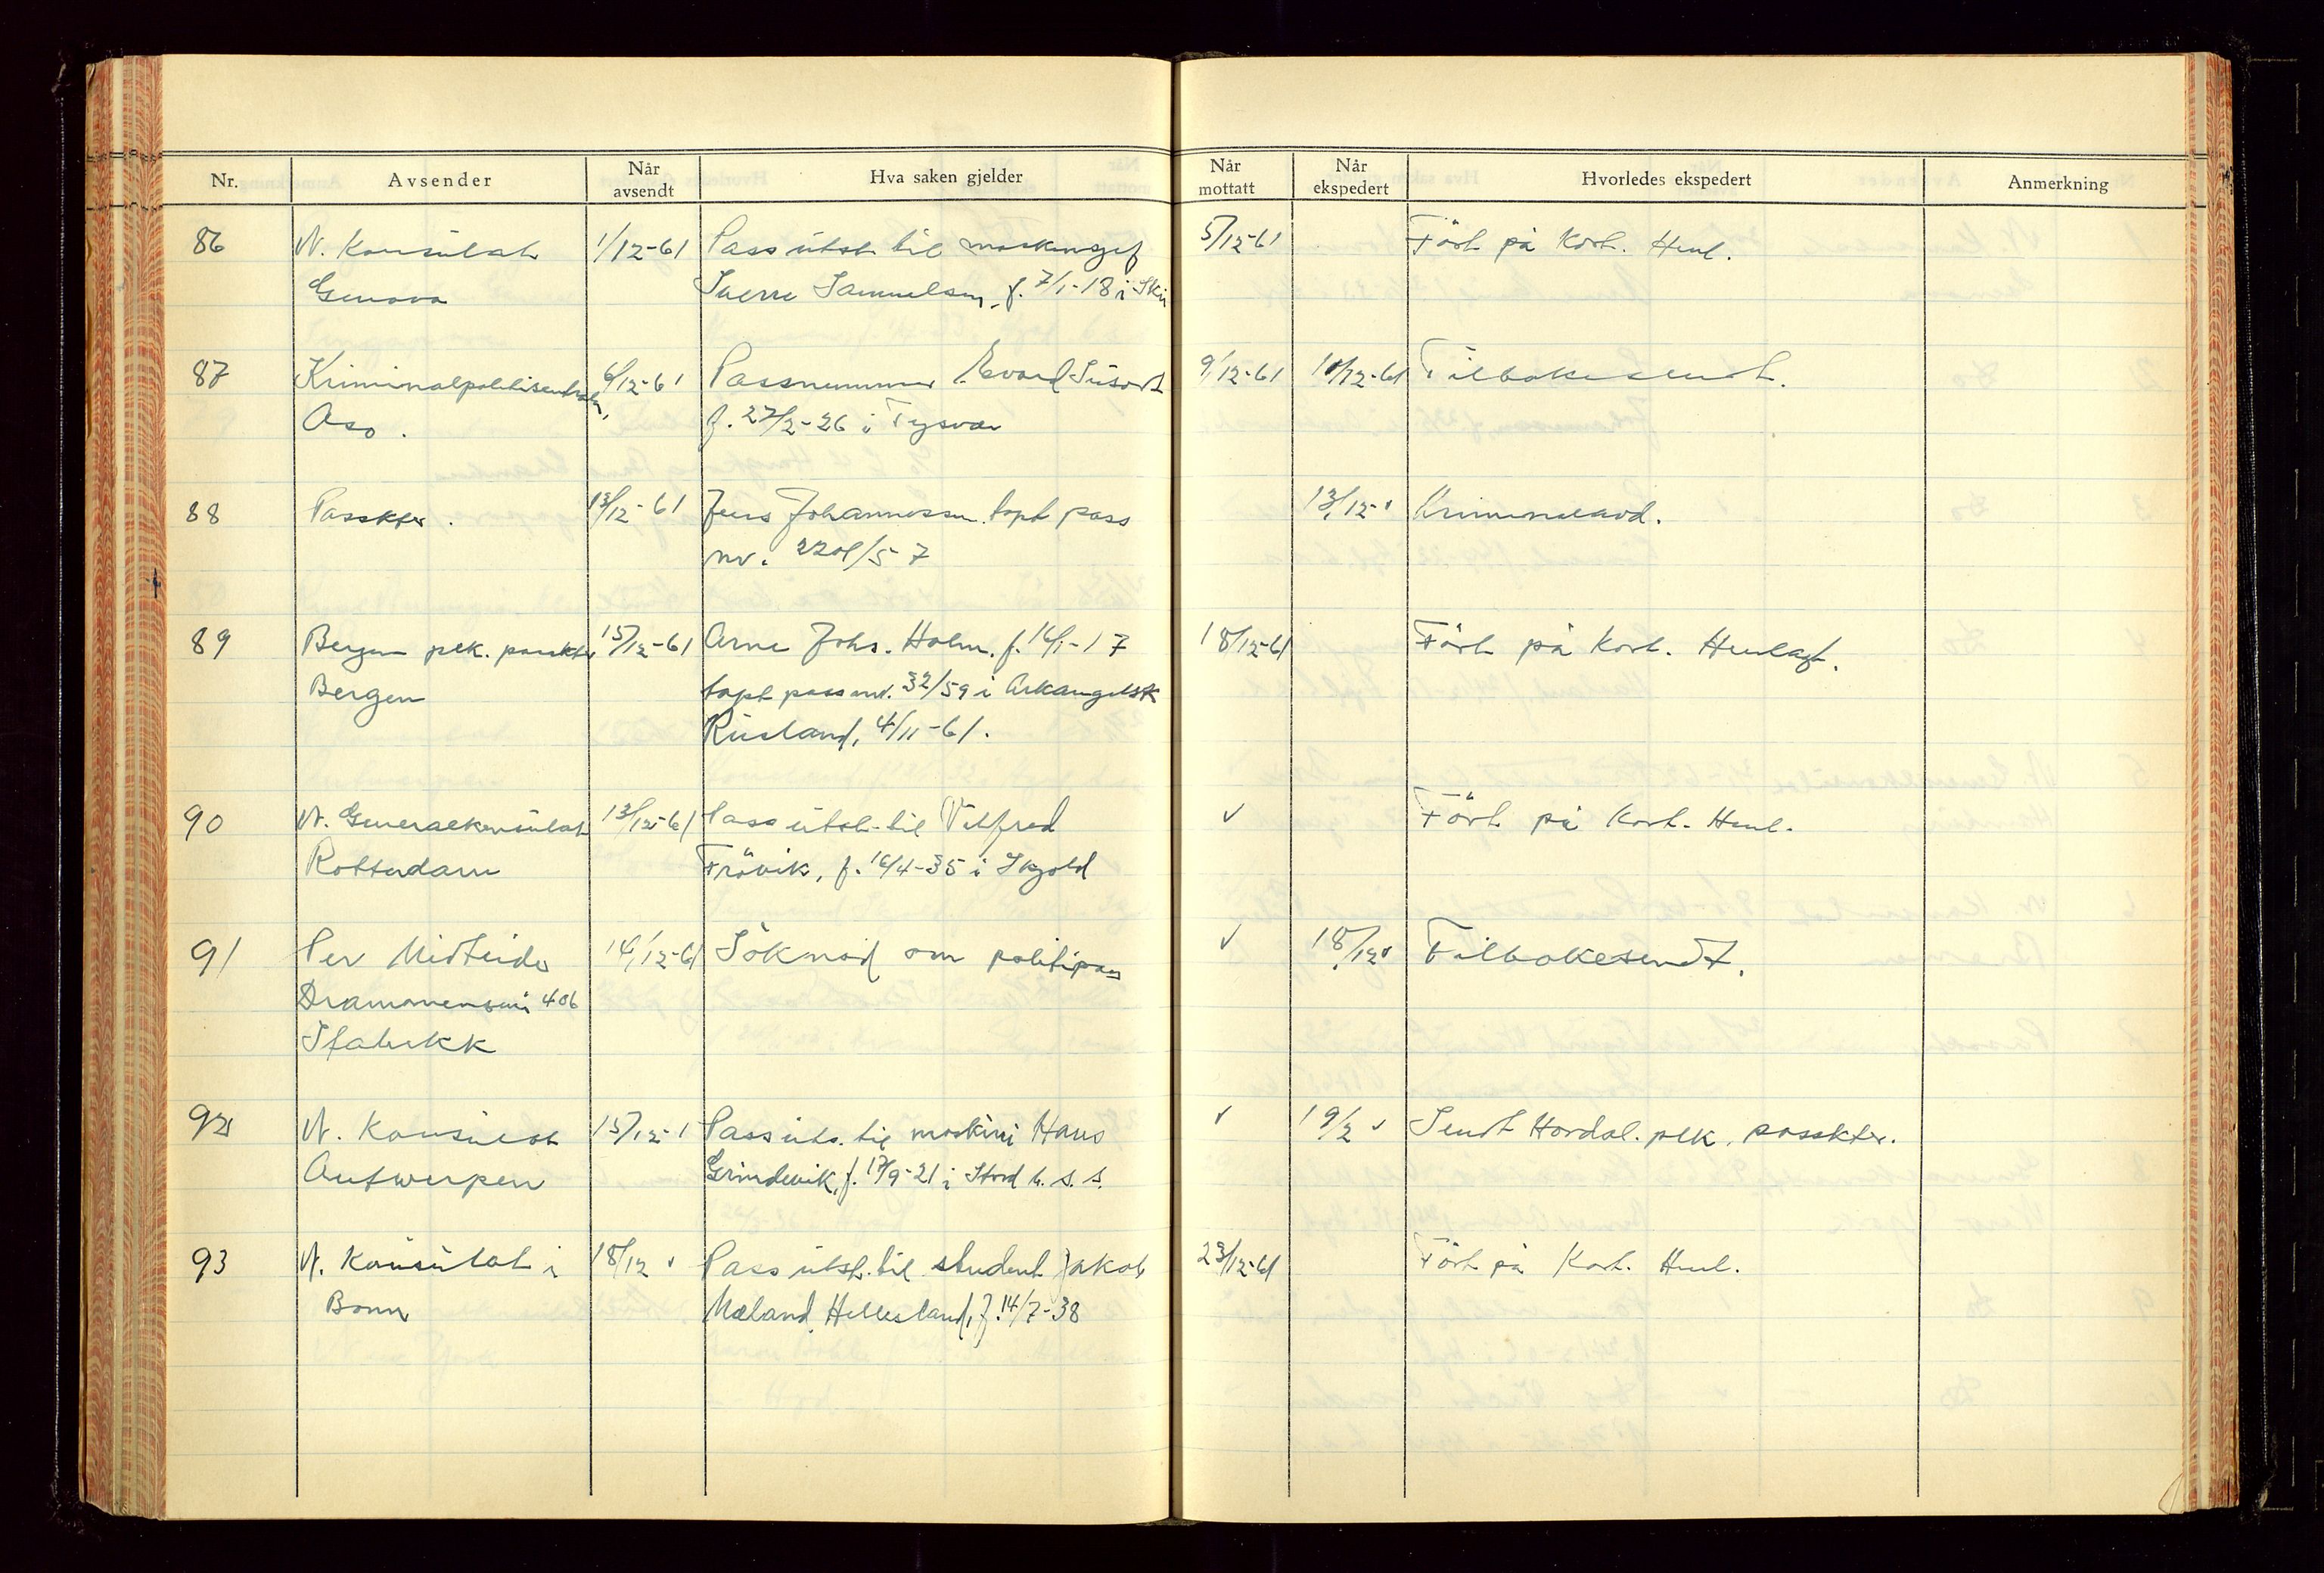 Nr. Avsender Når avsendt Hva saken gjelder Når mottatt Når ekspedert Hvorledes ekspedert Anmerkning
86 N. Konsulat 1/12-61 Pass utst. til maskinsjef 5/12-61 Ført på Kort. Henl.
Genova Sverre Samuelsen, f. 7/1-18 i
87 Kriminalpolitisentralen, 6/12-61 Passnummer 9/12-61 11/12-61 Tilbakesendt.
Oso. f. 27/2-26 i Tysvær
88 Passktr. 13/12-61 Jens Johannessen tapt pass 13/12-" Kriminalavd.
nr. 2201/57
89 Bergen plk. passktr 15/12-61 Arne Johs. Holm, f. 16/1-17 18/12-61 Ført på Kort. Henlagt.
Bergen tapt pass nr. 32/59 i Arkangelsk
Rusland, 4/11-61.
90 N. Generalkonsulat 13/12-61 Pass utst. til Vilfred ✓ Ført på Kort. Henl.
Rotterdam Frøvik, f. 16/4-35 i Skjold
91 Per Midteide 14/12-61 Søknad om politipass ✓ 18/12 ✓ Tilbakesendt.
Drammensvei 406
Stabekk
92 N. Konsulat 15/12-1 Pass uts. til maskini Hans ✓ 19/2 ✓ Sendt Hordal. plk. passktr.
Antwerpen Grindevik, f. 17/9-21 i Stord b. s. s.
93 N. Konsulat i 18/12 ✓ Pass utst. til student Jakob 23/12-61 Ført på Kort. Henl.
Bonn Mæland Hellesland, f. 14/7-38